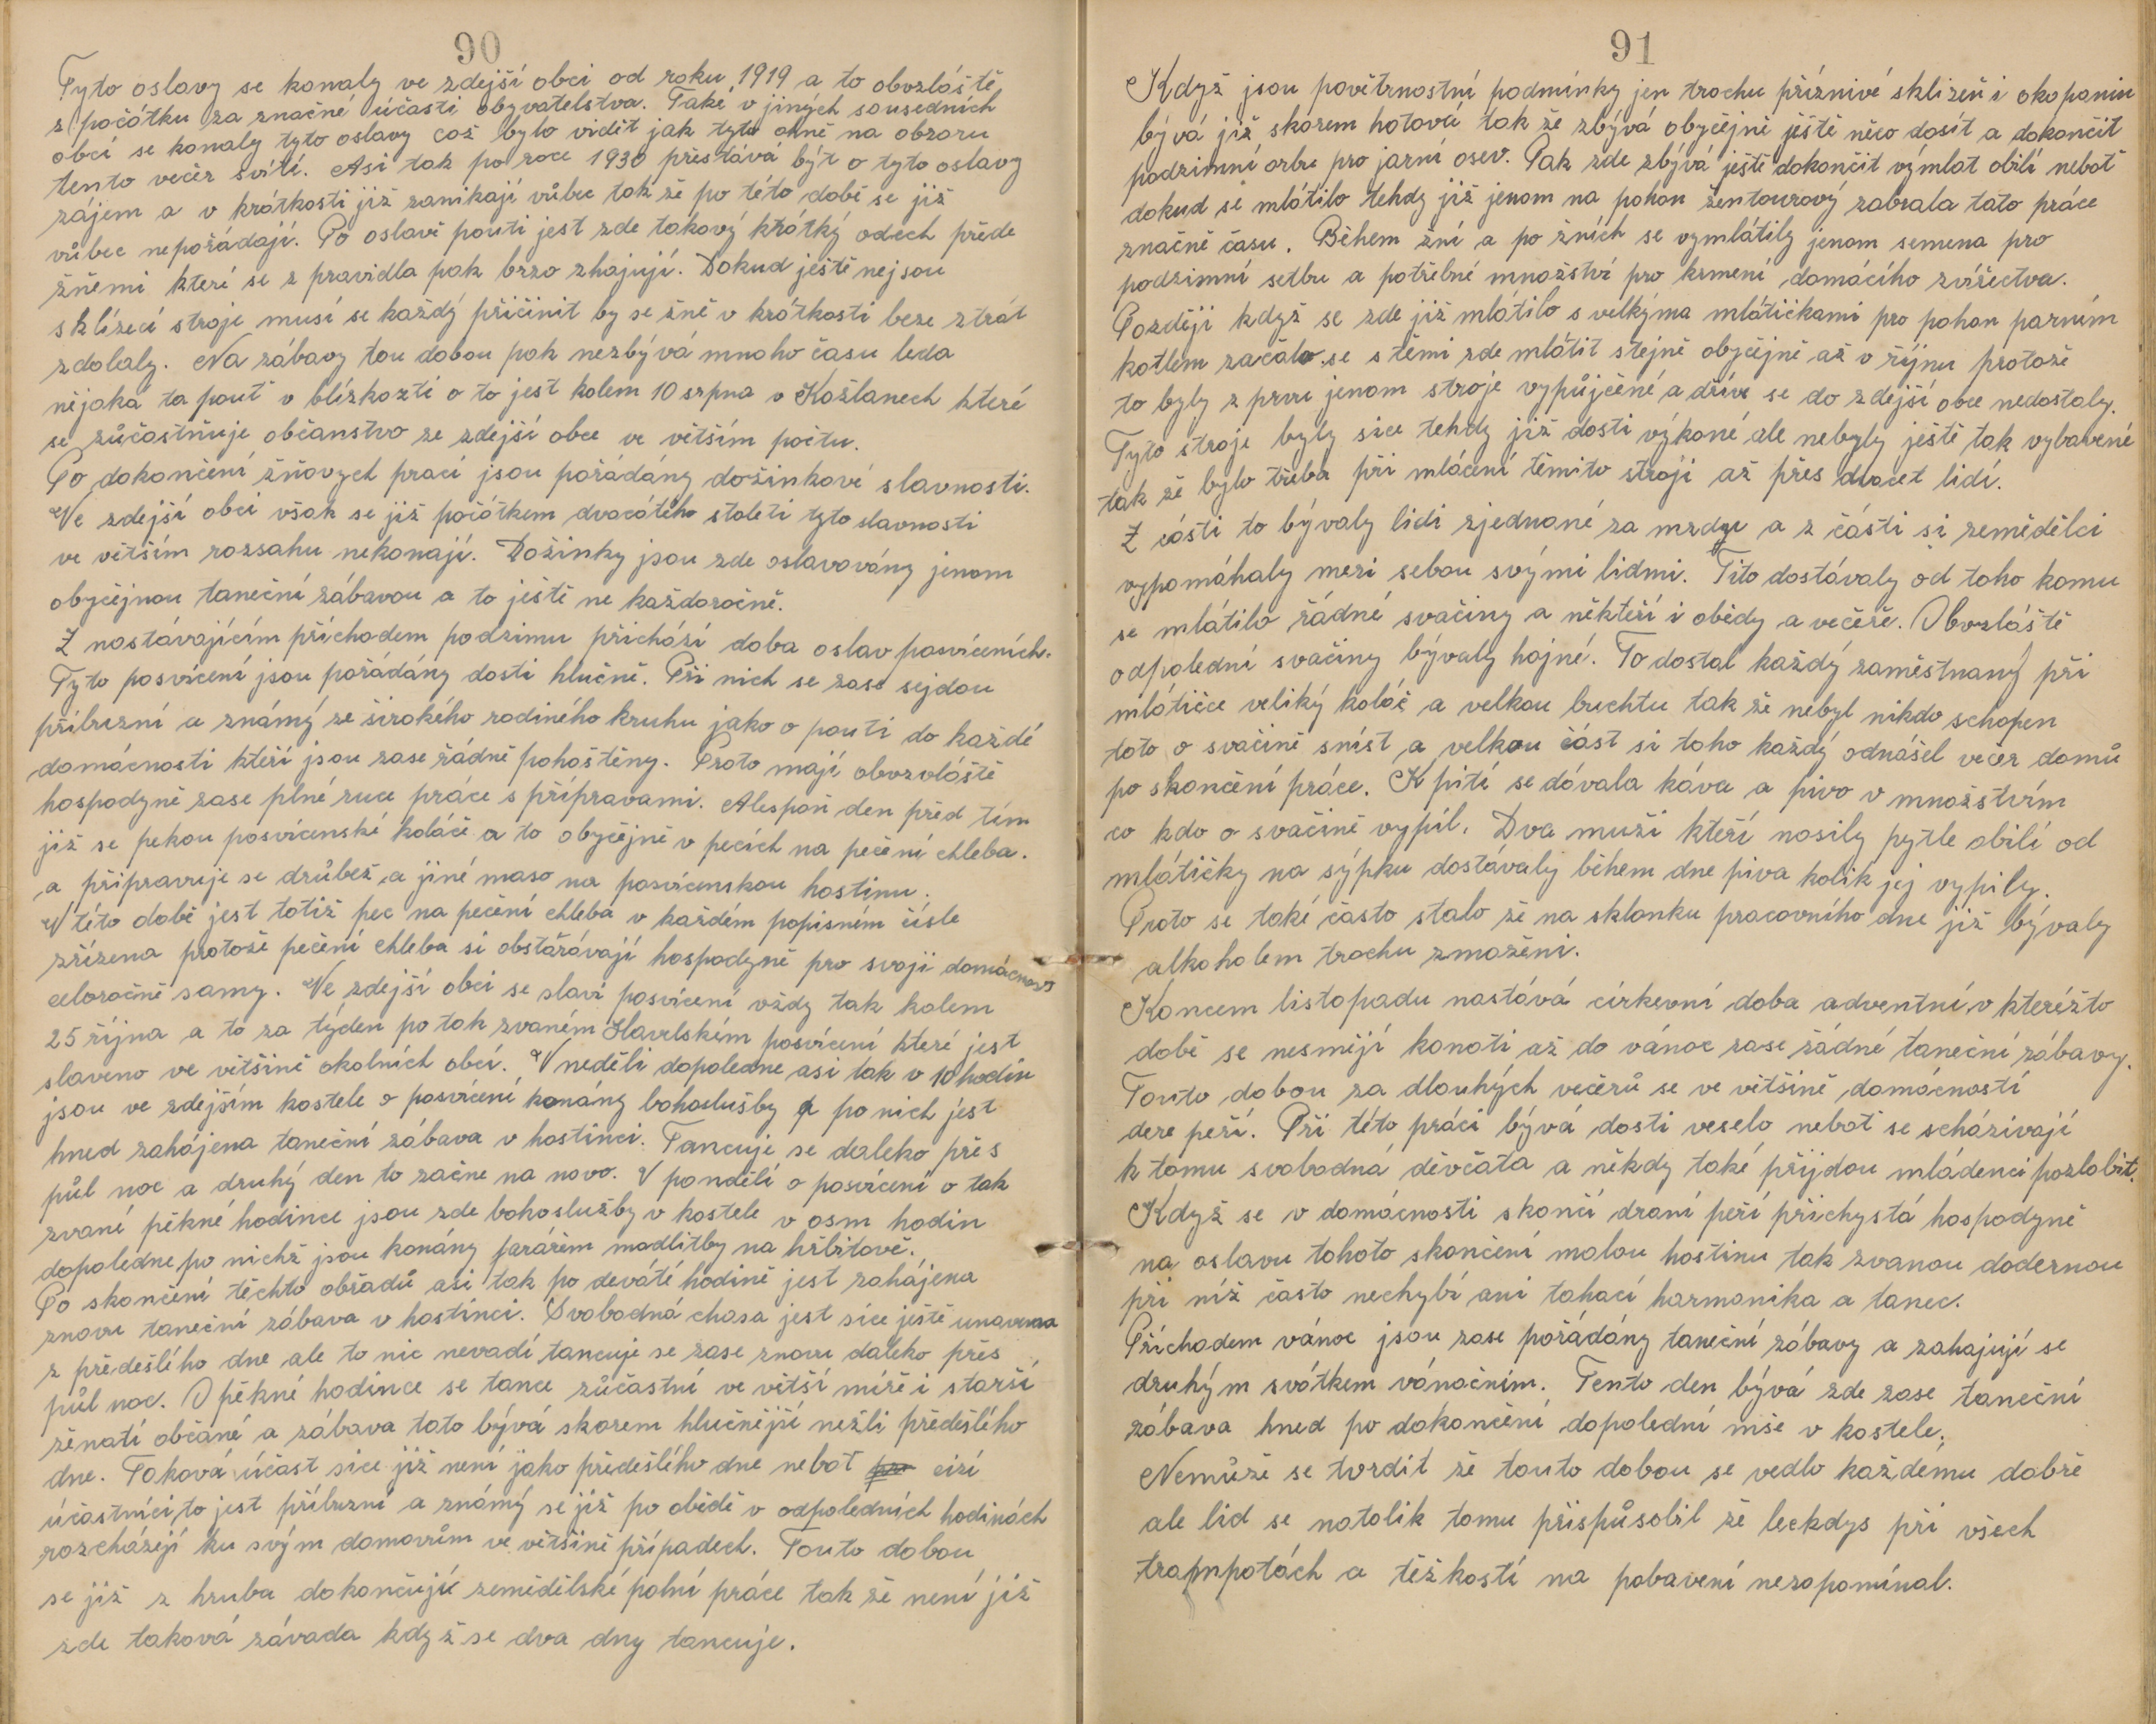 90
Tyto oslavy se konaly ve zdejší obci od roku 1919 a to obvzláště
z počátku za značné účasti obyvatelstva. Také v jiných sousedních
obcí se konaly tyto oslavy což bylo vidět jak tyto ohně na obzoru
tento večer svítí. Asi tak po roce 1930 přestává být o tyto oslavy
zájem a v krátkosti již zanikají vůbec tak že po této době se již
vůbec nepořádají. Po oslavě pouti jest zde takový krátký odech přede
žněmi kteří se z pravidla pak brzo zhajují. Dokud ještě nejsou
sklízecí stroje musí se každý přičinit by se žně v krátkosti beze ztrát
zdolaly. Na zábavy tou dobou pak nezbývá mnoho času leda
nějaká ta pouť v blízkozti o to jest kolem 10 srpna v Kožlanech které
se zůčastňuje občanstvo ze zdejší obce ve větším počtu.
Po dokončení žňových prací jsou pořádány dožinkové slavnosti.
Ve zdejší obci však se již počátkem dvacátého století tyto slavnosti
ve větším rozsahu nekonají. Dožinky jsou zde oslavovány jenom
obyčejnou taneční zábavou a to ještě ne každoročně.
Z nastávajícím příchodem podzimu přichází doba oslav posvíceních.
Tyto posvícení jsou pořádány dosti hlučně. Při nich se zase sejdou
příbuzní a známý ze širokého rodiného kruhu jako o pouti do každé
domácnosti kteří jsou zase řádně pohoštěny. Proto mají obvzvláště
hospodyně zase plné ruce práce s přípravami. Alespoň den před tím
již se pekou posvícenské koláče a to obyčejně v pecích na pečení chleba.
a připravuje se drůbež a jiné maso na posvícenskou hostinu.
V této době jest totiž pec na pečení chleba v každém popisném čísle
zřízena protože pečení chleba si obstarávají hospodyně pro svoji domácnost
celoročně samy. Ve zdejší obci se slaví posvícení vždy tak kolem
25 října a to za týden po tak zvaném Havelském posvícení které jest
slaveno ve většině okolních obcí. V neděli dopoledne asi tak v 10 hodin
jsou ve zdejším kostele o posvícení konány bohoslužby a po nich jest
hned zahájena taneční zábava v hostinci. Tancuje se daleko přes
půl noc a druhý den to začne na novo. V pondělí o posvícení o tak
zvané pěkné hodince jsou zde bohoslužby v kostele v osm hodin
dopoledne po nichž jsou konány farářem modlitby na hřbitově.
Po skončení těchto obřadů asi tak po deváté hodině jest zahájena
znovu taneční zábava v hostinci. Svobodná chasa jest sice ještě unavena
z předešlého dne ale to nic nevadí tancuje se zase znovu daleko přes
půl noc. O pěkné hodince se tance zůčastní ve větší míře i starší
ženatí občané a zábava tato bývá skorem hlučnější nežli předešlého
dne. Taková účast sice již není jako předešlého dne neboť cizí
účastníci to jest příbuzní a známý se již po obědě v odpoledních hodinách
rozcházejí ku svým domovům ve většině případech. Touto dobou
se již z hruba dokončují zemědělské polní práce tak že není již
zde taková závada když se dva dny tancuje.
91
Když jsou povětrnostní podmínky jen trochu příznivé sklizeň i okopanin
bývá již skorem hotová tak že zbývá obyčejně ještě něco dosít a dokončit
podzimní orbu pro jarní osev. Pak zde zbývá ještě dokončit výmlat obilí neboť
dokud se mlátilo tehdy již jenom na pohon žentourový zabrala tato práce
značně času. Během žní a po žních se vymlátily jenom semena pro
podzimní setbu a potřebné množství pro krmení domácího zvířectva.
Později když se zde již mlátilo s velkýma mlátičkami pro pohon parním
kotlem začalo se s těmi zde mlátit stejně obyčejně až v říjnu protože
to byly z prvu jenom stroje vypůjčené a dříve se do zdejší obce nedostaly.
Tyto stroje byly sice tehdy již dosti výkoné ale nebyly ještě tak vybavené
tak že bylo třeba při mlácení těmito stroji až přes dvacet lidí.
Z části to bývaly lidi zjednané za mzdu a z části si zemědělci
vypomáhaly mezi sebou svými lidmi. Tito dostávaly od toho komu
se mlátilo řádné svačiny a někteří i obědy a večeře. Obvzláště
odpolední svačiny bývaly hojné. To dostal každý zaměstnaný při
mlátičce veliký koláč a velkou buchtu tak že nebyl nikdo schopen
toto o svačině sníst a velkou část si toho každý odnášel večer domů
po skončení práce. K pití se dávala káva a pivo v množstvím
co kdo o svačině vypil. Dva muži kteří nosily pytle obilí od
mlátičky na sýpku dostávaly během dne piva kolik jej vypily.
Proto se také často stalo že na sklonku pracovního dne již bývaly
alkoholem trochu zmoženi.
Koncem listopadu nastává církevní doba adventní v kteréžto
době se nesmějí konati až do vánoc zase žádné taneční zábavy.
Touto dobou za dlouhých večerů se ve většině domácností
dere peří. Při této práci bývá dosti veselo neboť se scházívají
k tomu svobodná děvčata a někdy také přijdou mládenci pozlobit.
Když se v domácnosti skončí draní peří přichystá hospodyně
na oslavu tohoto skončení malou hostinu tak zvanou dodernou
při níž často nechybí ani tahací harmonika a tanec.
Příchodem vánoc jsou zase pořádány taneční zábavy a zahajují se
druhým svátkem vánočním. Tento den bývá zde zase taneční
zábava hned po dokončení dopolední mše v kostele.
Nemůže se tvrdit že touto dobou se vedlo každému dobře
ale lid se natolik tomu přispůsobil že leckdys při všech
trampotách a těžkostí na pobavení nezapomínal.